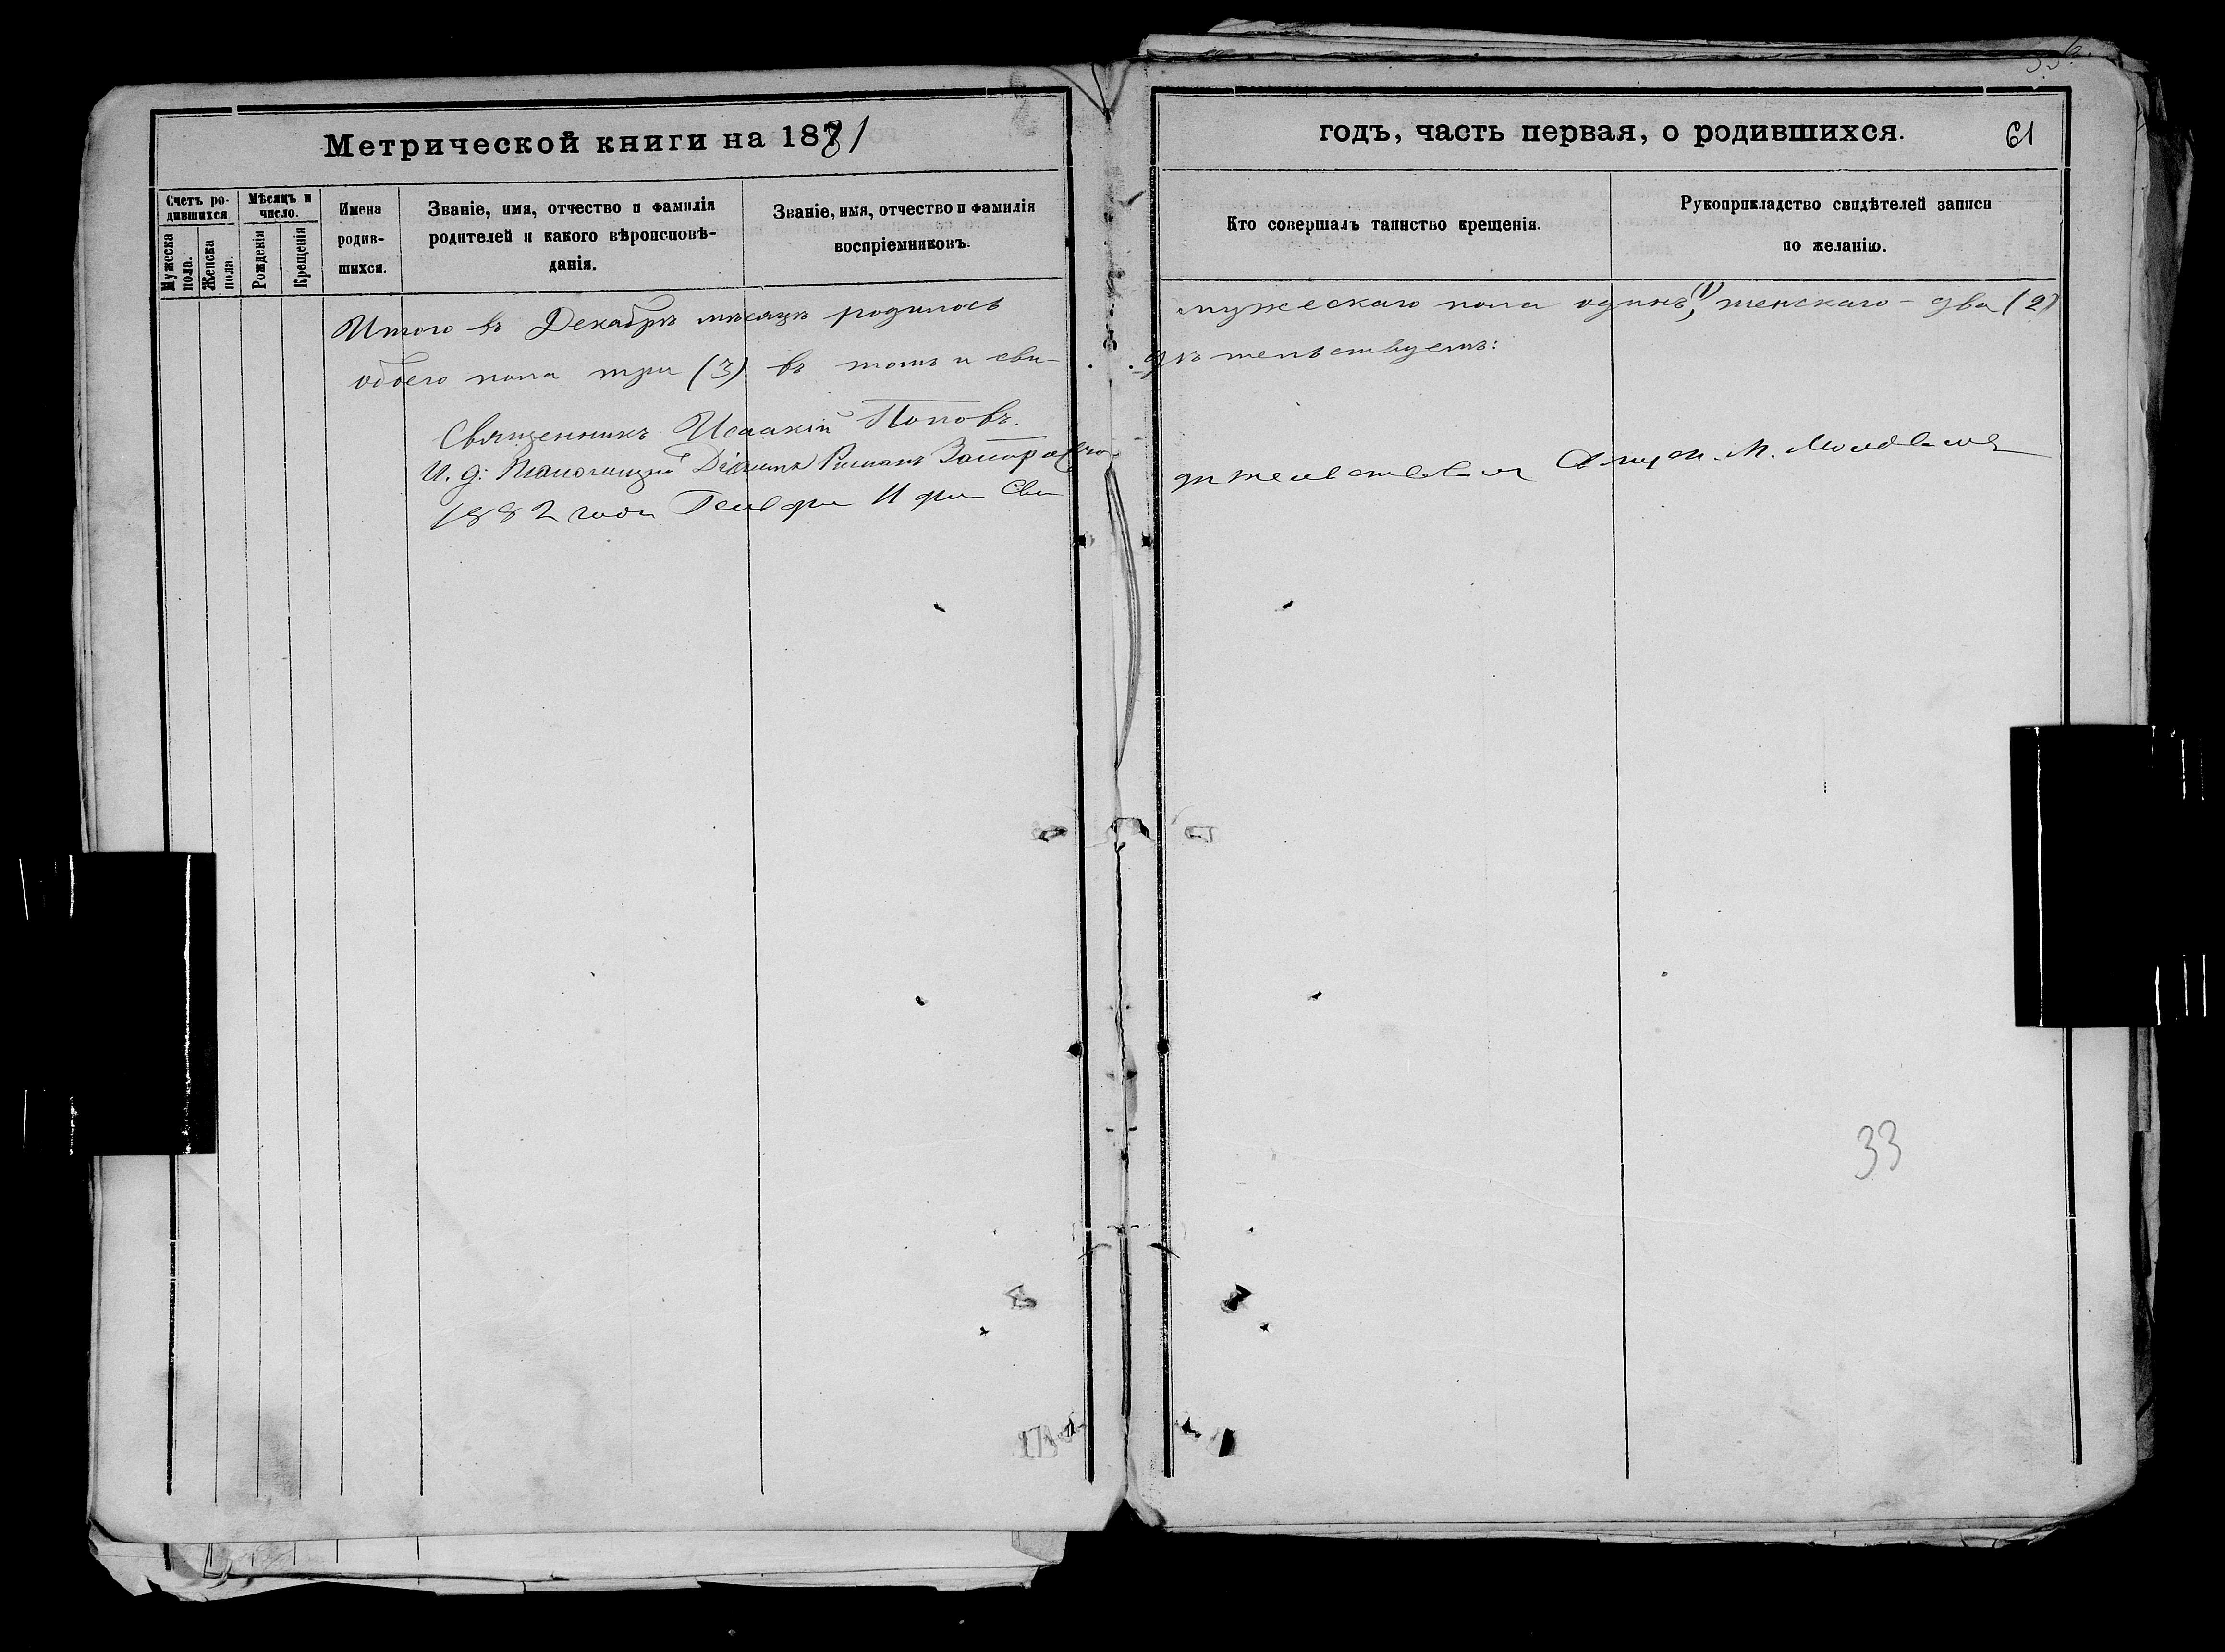 Метрической книги на 1881
Счетъ ро-
дившихся
Мѣсяцъ и
число.
Мужеска
пола.
Женска
пола.
Рожденія
Крещенія
Имена
родив-
шихся.
Званіе, имя, отчество и фамилія
родителей и какого вѣроисповѣ-
данія.
Званіе, имя, отчество и фамилія
воспріемниковъ.
Итого въ Декабрѣ мѣсяцѣ родилось
обоего пола три (3) въ томъ и сви-
Священникъ Исаакій Поповъ.
И. д. Псаломщика Діаконъ Романъ
1882 года Генваря 11 дня Сви
годъ, часть первая, о родившихся.
61
Кто совершалъ таинство крещенія.
Рукоприкладство свидѣтелей записи
по желанію.
мужескаго пола одинъ (1), женскаго - два (2)
дѣтельствуемъ:
дѣтельствовалъ
33